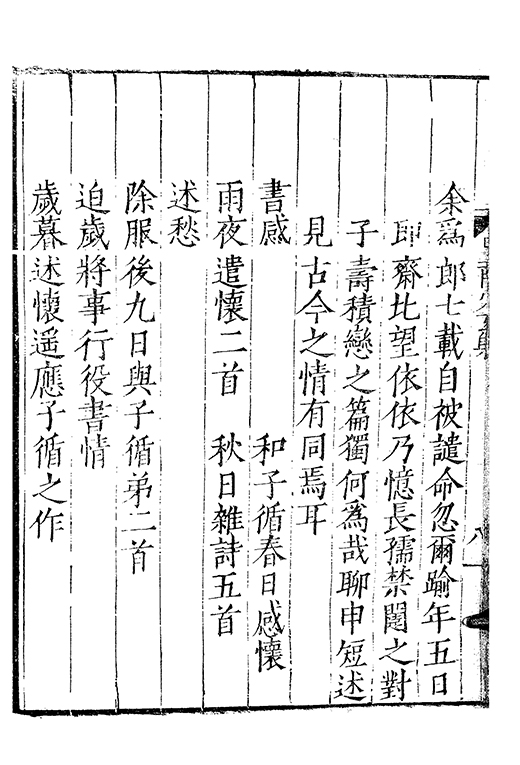 余為郎七載自被譴命忽爾踰年五日
即齋比望依依乃憶長孺禁闥之對
子壽積戀之篇獨何為哉聊申短述
見古今之情有同焉耳
書感　和子循春日感懷
雨夜遣懷二首　秋日雜詩五首
述愁
除服後九日與子循弟二首
迫歲將事行役書情
歲暮述懷遥應子循之作
八